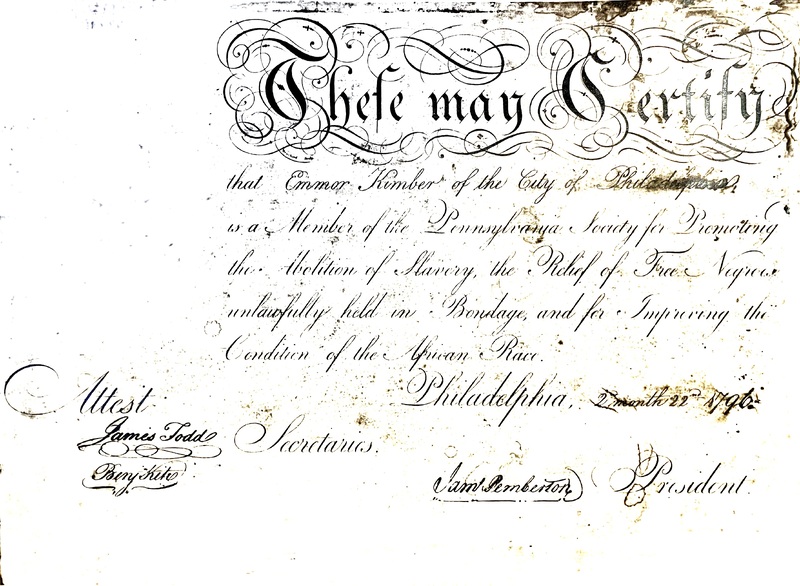 These may Certify
that Emmor Kimber of the City of Philadelphia,
is a Member of the Pennsylvania Society for Promoting
the Abolition of Slavery, the Relief of Free Negroes
unlawfully held in Bondage, and for Improving the
Condition of the African Race.
Philadelphia, 2d month 22d 1796.
Attest
James Todd
Secretaries.
Benj Kite
Jams Pemberton President